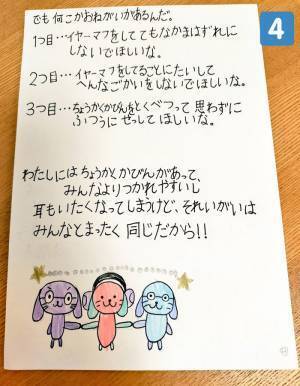 4
でも何こかおねがいがあるんだ。
1つ目…イヤーマフをしててもなかまはずれに
しないでほしいな。
2つ目…イヤーマフをしてることにたいして
へんなごかいをしないでほしいな。
3つ目…ちょうかくかびんをとくべつって思わずに
ふつうにせっしてほしいな。
わたしにはちょうかくかびんがあって、
みんなよりつかれやすいし
耳もいたくなってしまうけど、それいがいは
みんなとまったく同じだから!!